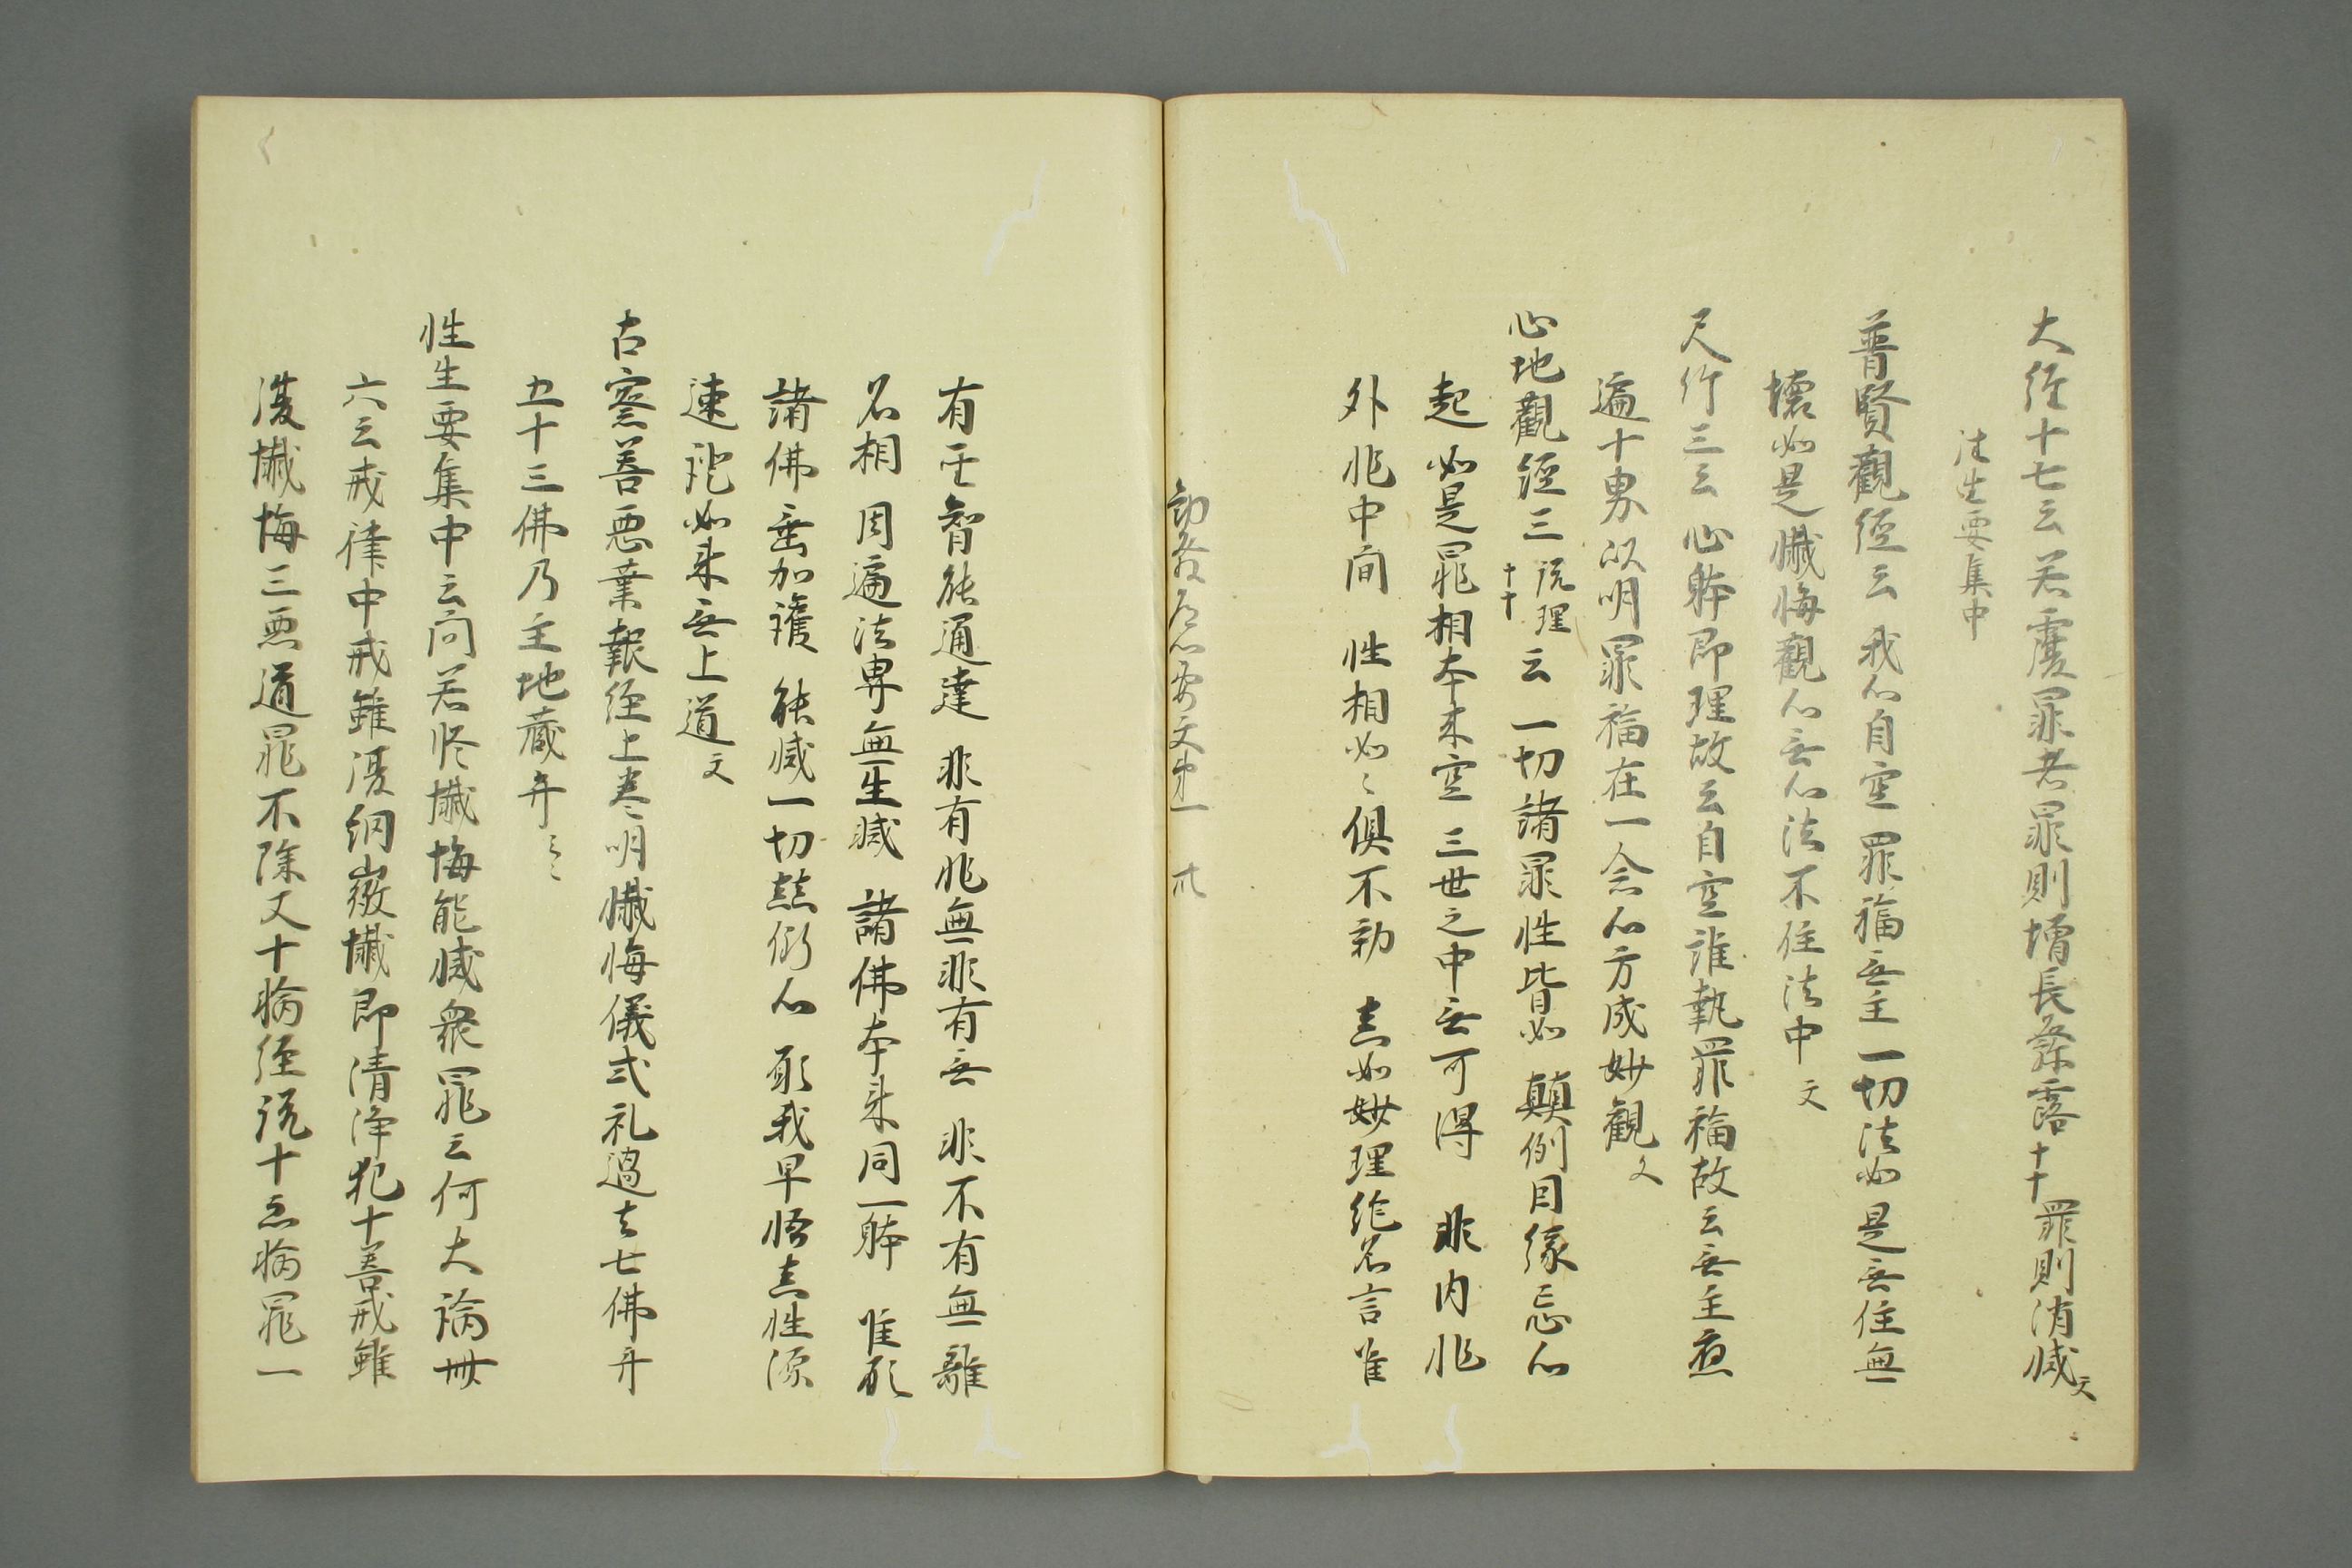 大経十七云若覆罪者罪則増長發露󠄁〻〻罪則消滅文
往生要集中
普賢観経云我心自空罪福無主一切法如是無住無
壊如是懺悔観心無心法不住法中文
尺竹三云心躰即理故云自空誰執罪福故云無主
遍十界以明罪福在一念心方成妙観文
心地観経三説理云一切諸罪性皆如顛倒因縁妄心
起如是罪相本来空三世之中無可得非内非
外非中間性相如〻倶不動真如妙理絶名言唯
勧發 心要文第一
有聖智能通達非有非無非有無非不有無離
名相周遍法界無生滅諸佛本来同一躰唯願
諸佛垂加護能滅一切顛倒心願我早悟真性源
速證如来無上道文
占察善悪業報経上巻明懺悔儀式礼過去七佛并
五十三佛乃至地蔵并云〻
往生要集中云問若修懺悔能滅衆罪云何大論卌
六云戒律中戒雖復細微懺即清浄犯十善戒雖
復懺悔三悪道罪不除文十輪経説十悪輪罪一